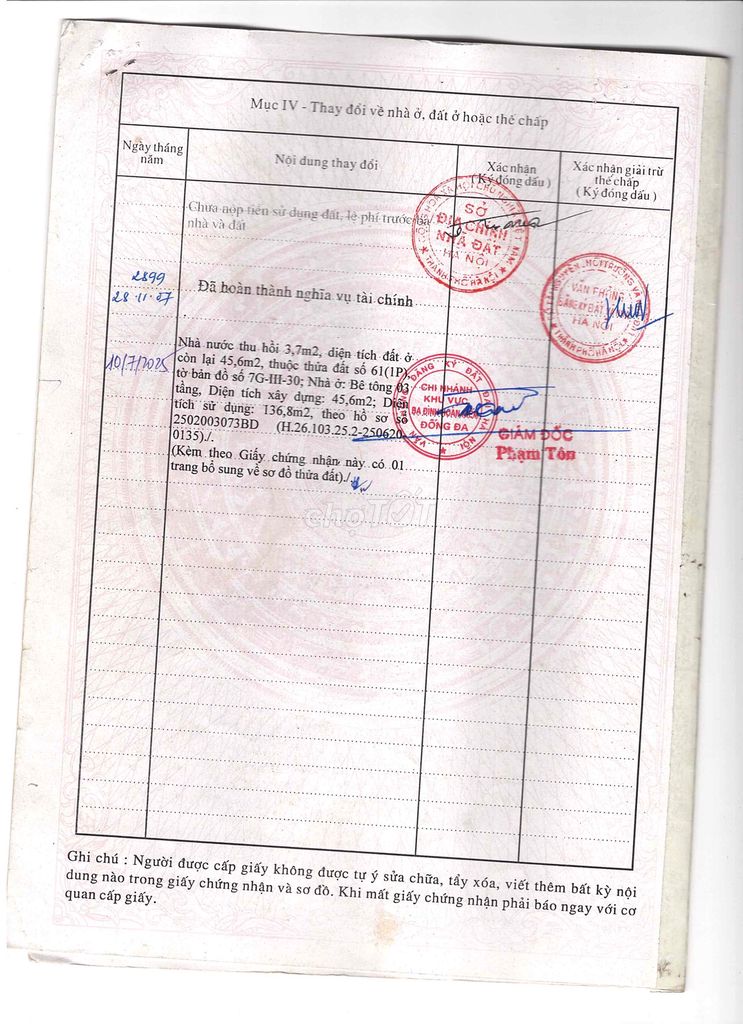 Mục IV - Thay đổi về nhà ở, đất ở hoặc thế chấp
Ngày tháng năm
Nội dung thay đổi
Xác nhận
(Ký đóng dấu)
Xác nhận giải trừ
thế chấp
(Ký đóng dấu)
Chưa nộp tiền sử dụng đất, lệ phí trước bạ
nhà và đất
SỞ
ĐỊA CHÍNH
NHÀ ĐẤT
HÀ NỘI
THÀNH PHỐ HÀ NỘI
2899
28.11.07
Đã hoàn thành nghĩa vụ tài chính
VĂN PHÒNG
HÀ NỘI
THÀNH PHỐ HÀ NỘI
10/7/2025
Nhà nước thu hồi 3,7m2, diện tích đất ở
còn lại 45,6m2, thuộc thửa đất số 61(1P),
tờ bản đồ số 7G-III-30; Nhà ở: Bê tông 03
tầng, Diện tích xây dựng: 45,6m2; Diện
tích sử dụng: 136,8m2, theo hồ sơ số
2502003073BD (H.26.103.25.2-250620-
0135)./.
(Kèm theo Giấy chứng nhận này có 01
trang bổ sung về sơ đồ thửa đất)./.
CHI NHÁNH
KHU VỰC
ĐỐNG ĐA
GIÁM ĐỐC
Phạm Tôn
chợTỐT
Ghi chú : Người được cấp giấy không được tự ý sửa chữa, tẩy xóa, viết thêm bất kỳ nội
dung nào trong giấy chứng nhận và sơ đồ. Khi mất giấy chứng nhận phải báo ngay với cơ
quan cấp giấy.